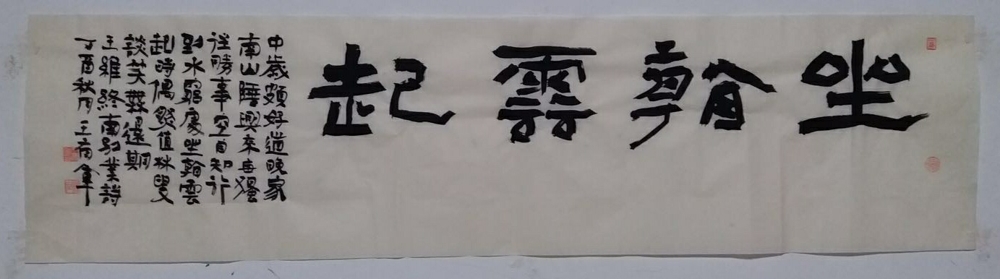 坐看雲起
中歲頗好道晚家
南山陲興來每獨
往勝事空自知行
到水窮處坐看雲
起時偶然值林叟
談笑無還期
王維終南別業詩
丁酉秋月王